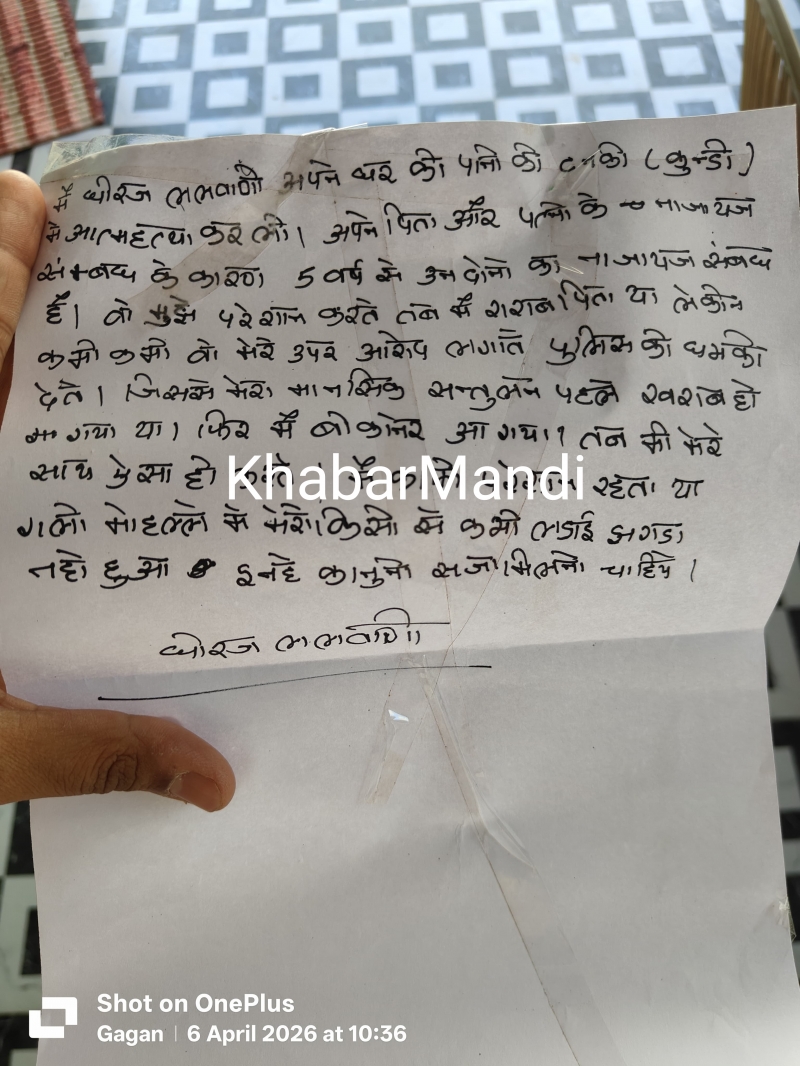 मैं धीरज ललवाणी अपने घर की पानी की टन्की (कुन्डी)
मे आत्महत्या कर ली। अपने पिता और पत्नी के नाजायज
सम्बध के कारण 5 वर्ष से उन दोनो का नाजायज संबध
है। वो मुझे परेशान करते तब मैं शराब पिता था लेकीन
कभी कभी वो मेरे उपर आरोप लगाते पुलिस की धमकी
देते। जिससे मेरा मानसिक सन्तुलन पहले खराब हो
गया था। फिर मैं बीकानेर आ गया। तब भी मेरे
साथ ऐसा ही करते। मैं परेशान रहता था
गली मोहल्ले मे मेरी किसी से कभी लडाई झगडा
नही हुआ इन्हे कानुनी सजा मिलनी चाहिये।
धीरज ललवाणी
KhabarMandi
Shot on OnePlus
Gagan | 6 April 2026 at 10:36